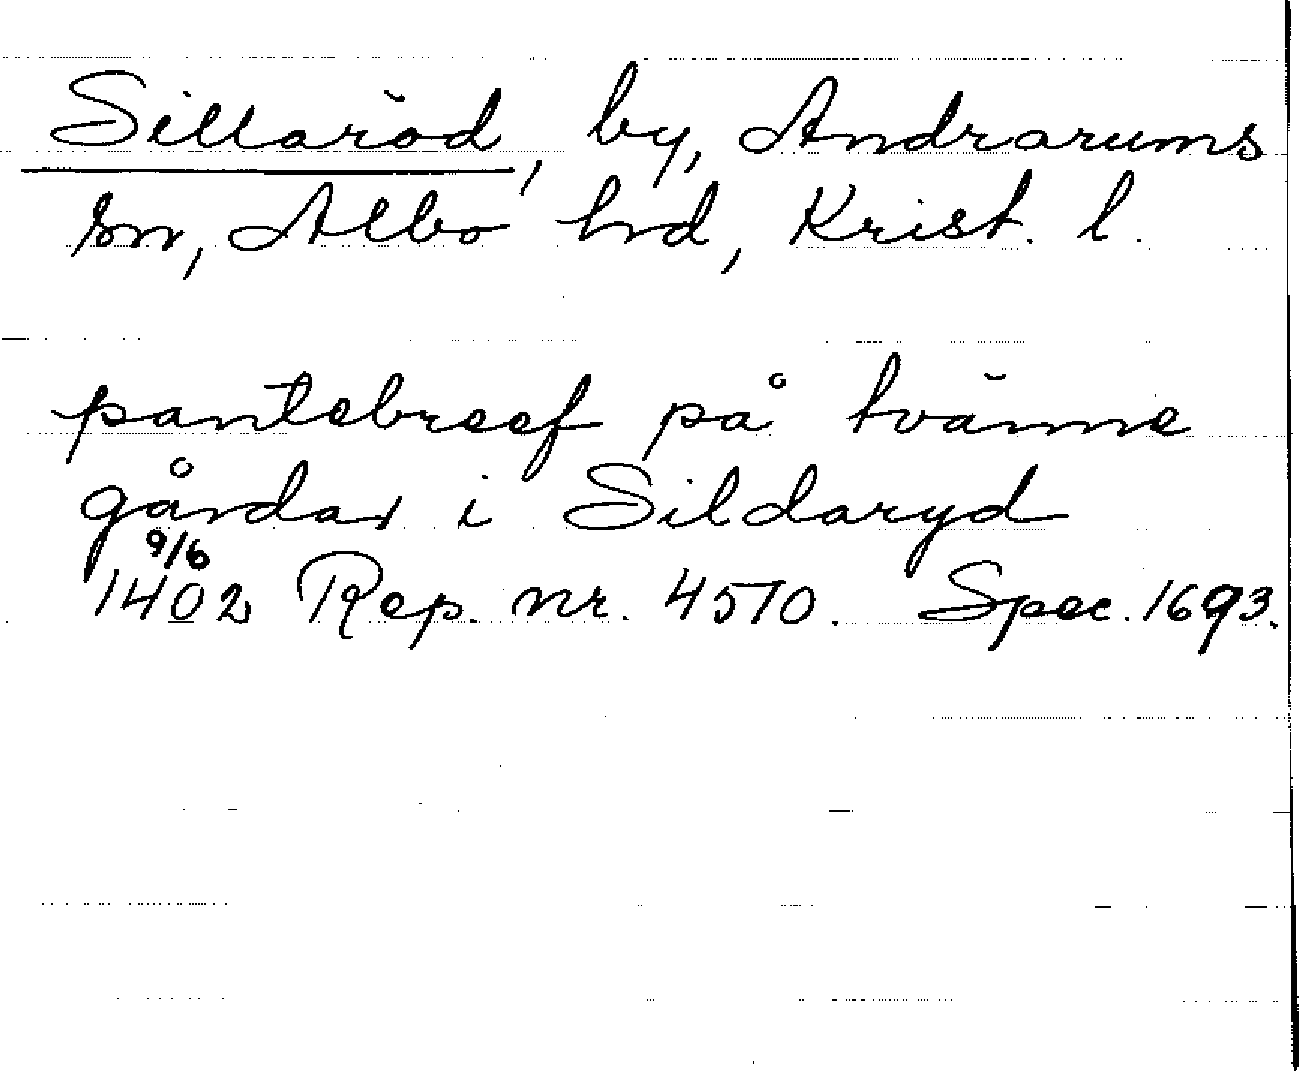 Sillaröd, by, Andrarums
sn, Albo hd, Krist. l.
pantebreef på tvänne
gårdar i Sildaryd
9/6
1402 Rep. nr. 4570. Spec. 1693.